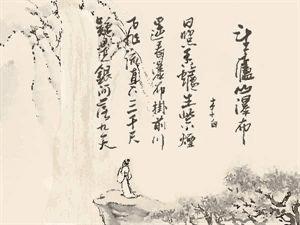 望廬山瀑布
李白
日照香爐生紫煙
遙看瀑布掛前川
飛流直下三千尺
疑是銀河落九天